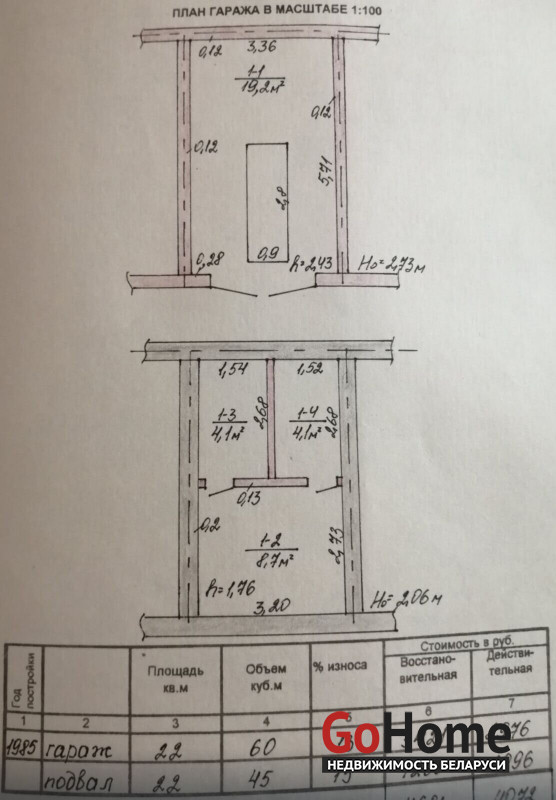 ПЛАН ГАРАЖА В МАСШТАБЕ 1:100
0,12 3,36
1-1
19,2 м²
0,12
0,12
5,71
2,8
0,28 0,9 h=2,43 Н₀=2,73 м
1,54 1,52
1-3 2,68 1-4 2,68
4,1 м² 4,1 м²
0,13
0,2
1-2 2,73
8,7 м²
h=1,76
3,20 Н₀=2,06 м
Год постройки
Площадь кв.м
Объем куб.м
% износа
Стоимость в руб.
Восстано-вительная
Действи-тельная
1 2 3 4 5 6 7
1985 гараж 22 60
подвал 22 45
GoHome
НЕДВИЖИМОСТЬ БЕЛАРУСИ